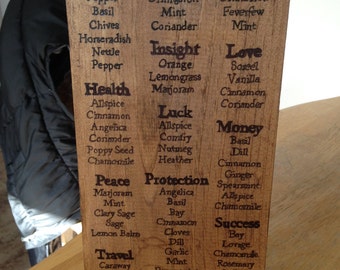 Basil
Chives
Horseradish
Nettle
Pepper
Health
Allspice
Cinnamon
Angelica
Coriander
Poppy Seed
Chamomile
Peace
Marjoram
Mint
Clary Sage
Sage
Lemon Balm
Travel
Caraway
Mint
Coriander
Insight
Orange
Lemongrass
Marjoram
Luck
Allspice
Comfry
Nutmeg
Heather
Protection
Angelica
Basil
Bay
Cinnamon
Cloves
Dill
Garlic
Mint
Feverfew
Mint
Love
Vanilla
Cinnamon
Coriander
Money
Basil
Dill
Cinnamon
Ginger
Spearmint
Allspice
Chamomile
Success
Bay
Lovage
Chamomile
Rosemary